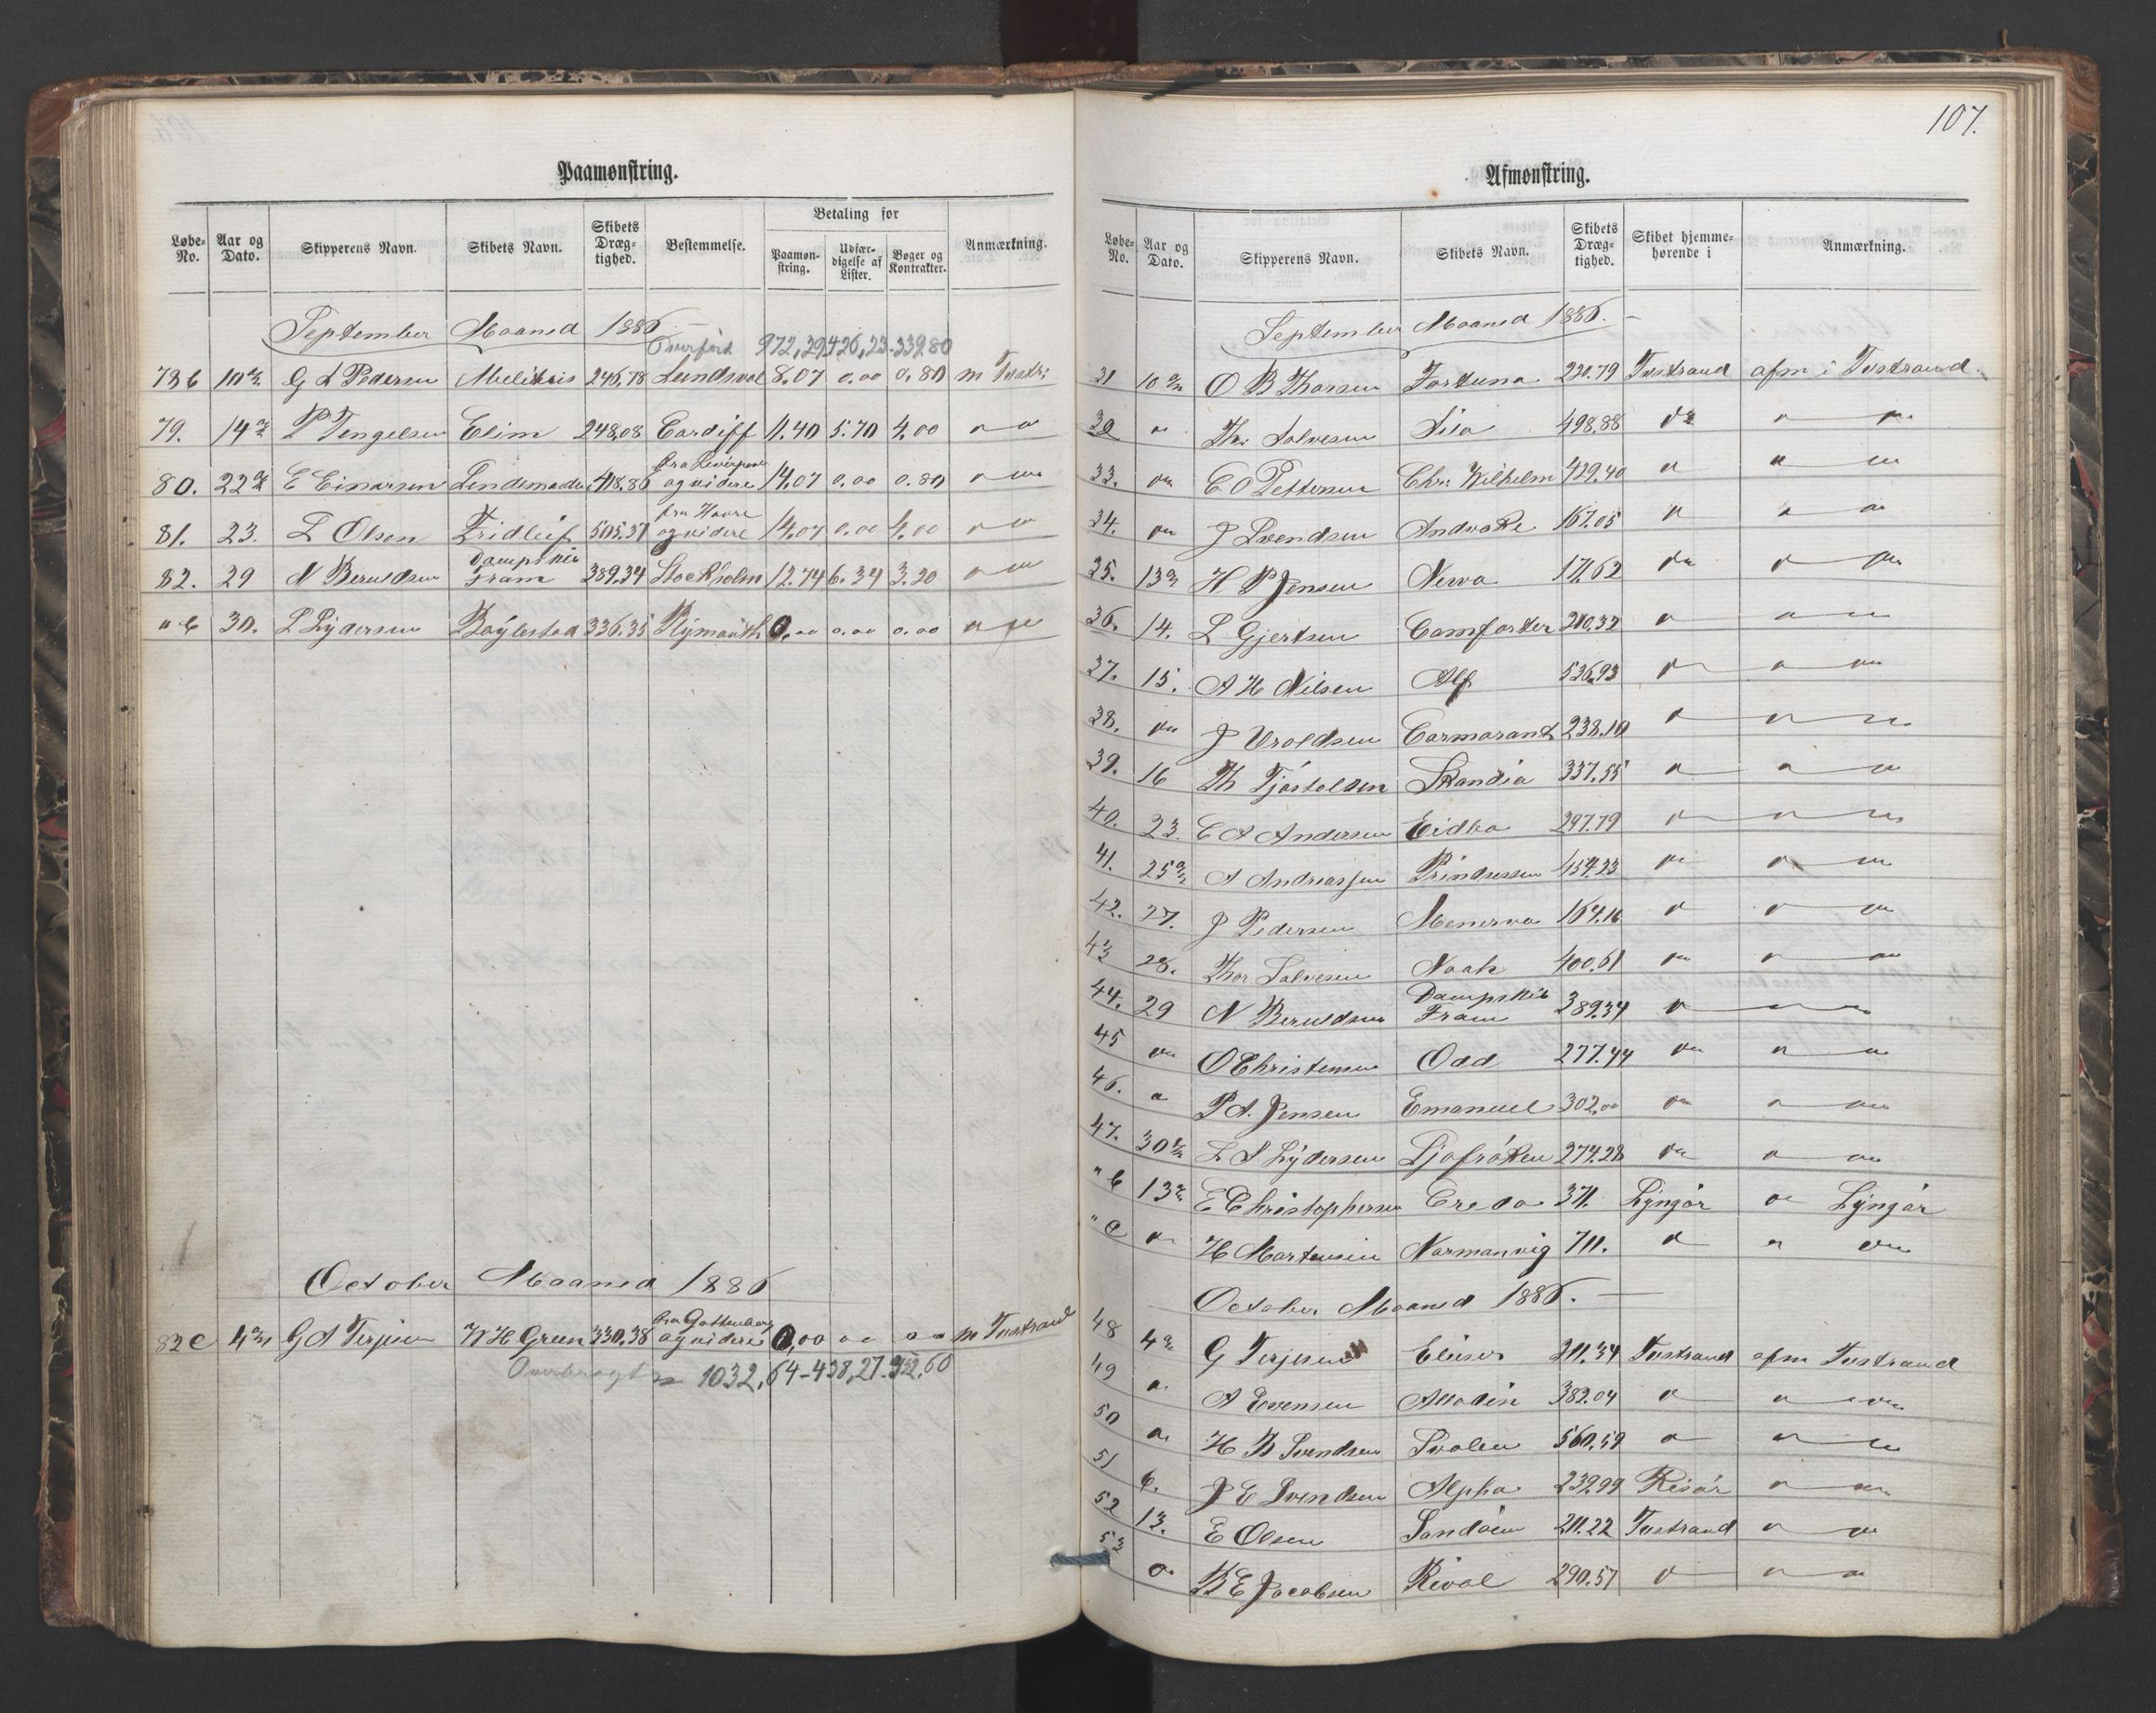 Paamønstring.
Løbe-No. Aar og Dato. Skipperens Navn. Skibets Navn. Skibets Dræg-tighed. Bestemmelse. Betaling for Paamøn-string. Udfær-digelse af Lister. Bøger og Kontrakter. Anmærkning.
September Maaned 1886.
Overført 972,29 426,23 339 80
78 b 10 G L Pedersen 246,78 Lundsval 8.07 0.00 0.80 m Tvstr:
79. 14 P Tengelsen Elim 248,08 Cardiff 11.40 5.70 4.00 " "
80. 22 E Einarsen 418.86 fra Liverpool og videre 14.07 0.00 0.80 " "
81. 23. L Olsen Fridleif 505.37 fra Havre og videre 14.07 0.00 4.00 " "
82. 29 N Beruldsen Dampskib Fram 389.34 Stockholm 12.74 6.34 3.20 " "
" b 30. L Lydersen Bøylestad 336.35 Plymouth 0,00 0.00 0.00 " "
October Maaned 1886
82 c 4 G A Terjesen W H Green 330.38 fra Gottenborg og videre 0,00 " " " m Tvstrand
Overbragt 1032,64 - 438,27 - 352.60
107.
Afmønstring.
Løbe-No. Aar og Dato. Skipperens Navn. Skibets Navn. Skibets Dræg-tighed. Skibet hjemme-hørende i Anmærkning.
September Maaned 1886.
31 10 O B Thorsen Fortuna 220.79 Tvstrand afm i Tvstrand.
32 " Th: Salvesen Sila 498.88 do " "
33. " C O Pettersen Chr: Wilhelm 429.40 " " "
34. " J Svendsen Andvake 167.05 " " "
35. 13 H P Jensen Nerva 171.62 " " "
36. 14. L Gjertsen Comforter 210.32 " " "
37. 15. A H Nilsen Alf 536.93 " " "
38. " J Uroldsen Cormorant 238.10 " " "
39. 16 Th Tjøstolsen Skandia 337.55 " " "
40. 23. C A Andersen Eidba 297.79 " " "
41. 25 A Andreassen Prindsessen 454.23 " " "
42. 27. J Pedersen Menerva 164.16 " " "
43 28. Thor Salvesen Noah 400.61 " " "
44. 29 N Beruldsen Dampskib Fram 389.34 " " "
45 " O Christensen Odd 277.44 " " "
46. " P A. Jensen Emanuel 302.00 " " "
47. 30 L S Lydersen Sjøfrøken 274.28 " " "
" b 13 E Christophersen Creda 371. Lyngør " Lyngør
" c " H Mortensen Normanvig 711. " " "
October Maaned 1886.
48 4 G Terjesen Elieser 211.34 Tvstrand afm Tvstrand
49 " A Evensen Alladin 382.04 " " "
50 " H B Svendsen Svalen 560.59 " " "
51 6. J E Svendsen Alpha 239.99 Risør " "
52 13. E Olsen Sandøen 211.22 Tvstrand " "
53 " B E Jacobsen Rival 290.57 " " "